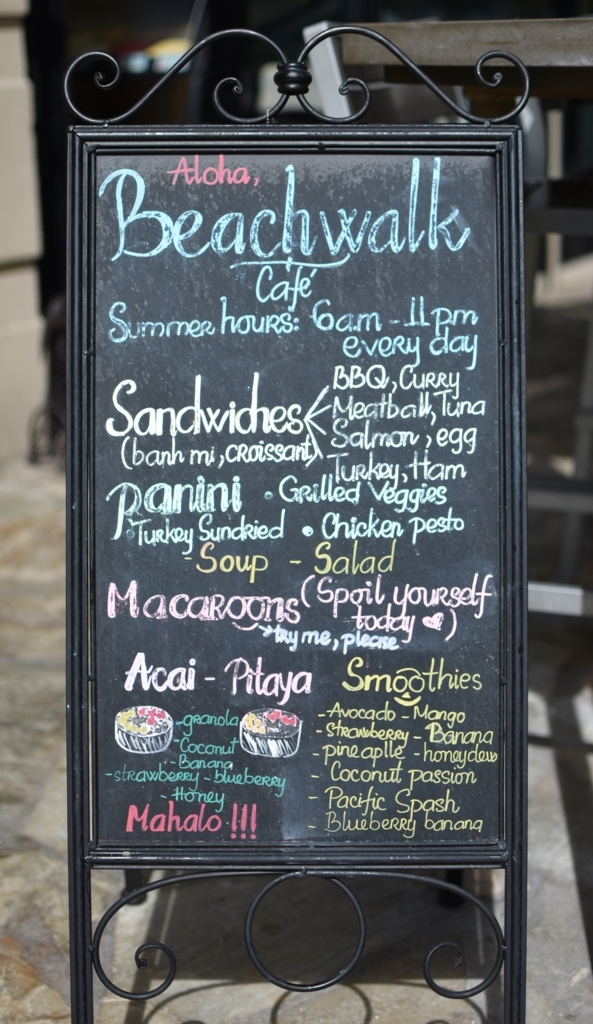 Aloha,
Beachwalk
Café
Summer hours: 6am - 11pm
every day
Sandwiches
(banh mi, croissant)
BBQ, Curry
Meatball, Tuna
Salmon, egg
Turkey, Ham
Panini • Grilled Veggies
• Turkey Sundried • Chicken pesto
- Soup - Salad
Macaroons (Spoil yourself
today ♥)
→ try me, please
Acai - Pitaya
- granola
- Coconut
- Banana
- strawberry - blueberry
- Honey
Mahalo !!!
Smoothies
- Avocado - Mango
- Strawberry - Banana
- pineaplle - honeydew
- Coconut passion
- Pacific Spash
- Blueberry banana